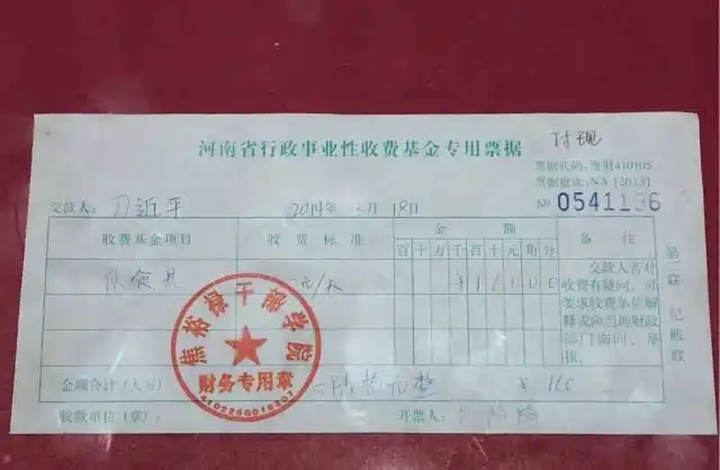 河南省行政事业性收费基金专用票据
付现
票据代码:豫财410105
票据批次:NA [2013]
№ 0541136
交款人:习近平 2014年3月18日
收费基金项目 收费标准 金额 备注
百十万千百十元角分
伙食费 元/天 ¥16000
交款人若对
收费有疑问,可
要求收费单位解
释或向当地财政
部门询问、举
报。
焦裕禄干部学院
财务专用章
金额合计(大写) 陆拾元整 ¥ 160
收款单位(章): 开票人:
联 记账联